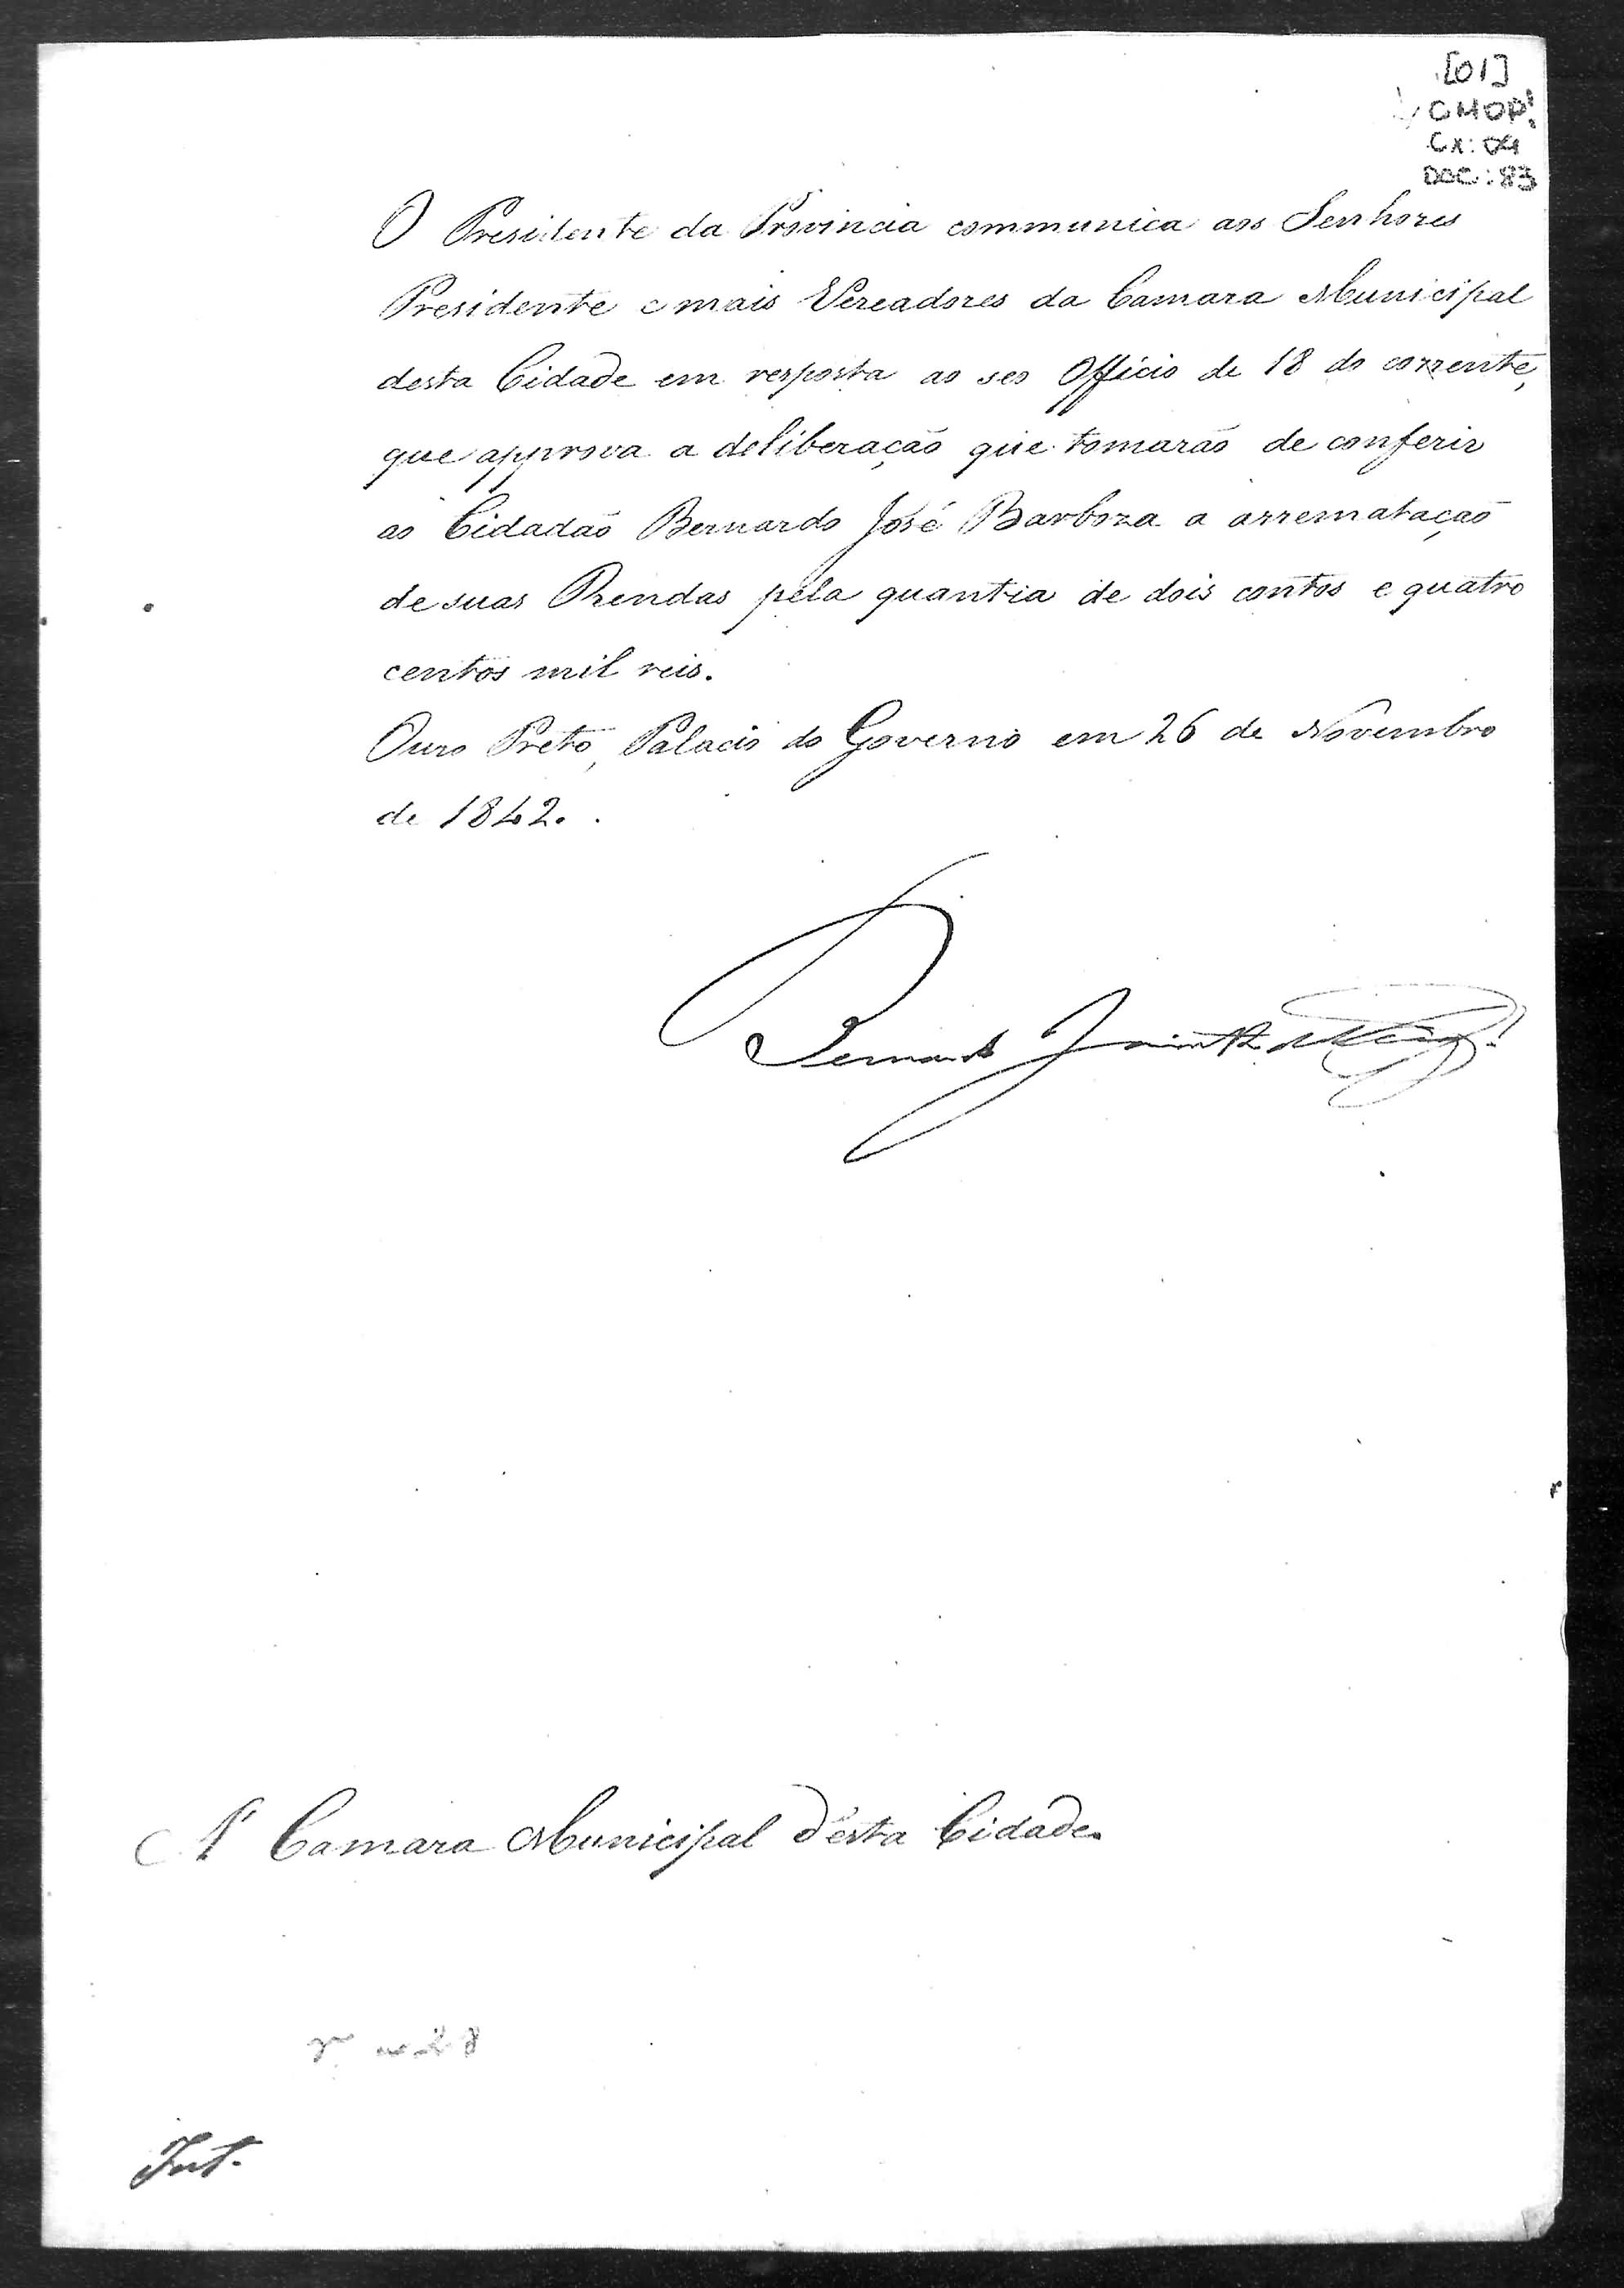 [01]
CMOP
Cx: 04
DOC: 83
O Presidente da Provincia communica aos Senhores
Presidente e mais Vereadores da Camara Municipal
desta Cidade em resposta ao seo Officio de 18 do corrente,
que approva a deliberação que tomarão de conferir
ao Cidadão Bernardo José Barboza a arrematação
de suas Rendas pela quantia de dois contos e quatro
centos mil reis.
Ouro Preto, Palacio do Governo em 26 de Novembro
de 1842.
Bernardo Jacintho da Veiga
A' Camara Municipal d'esta Cidade.